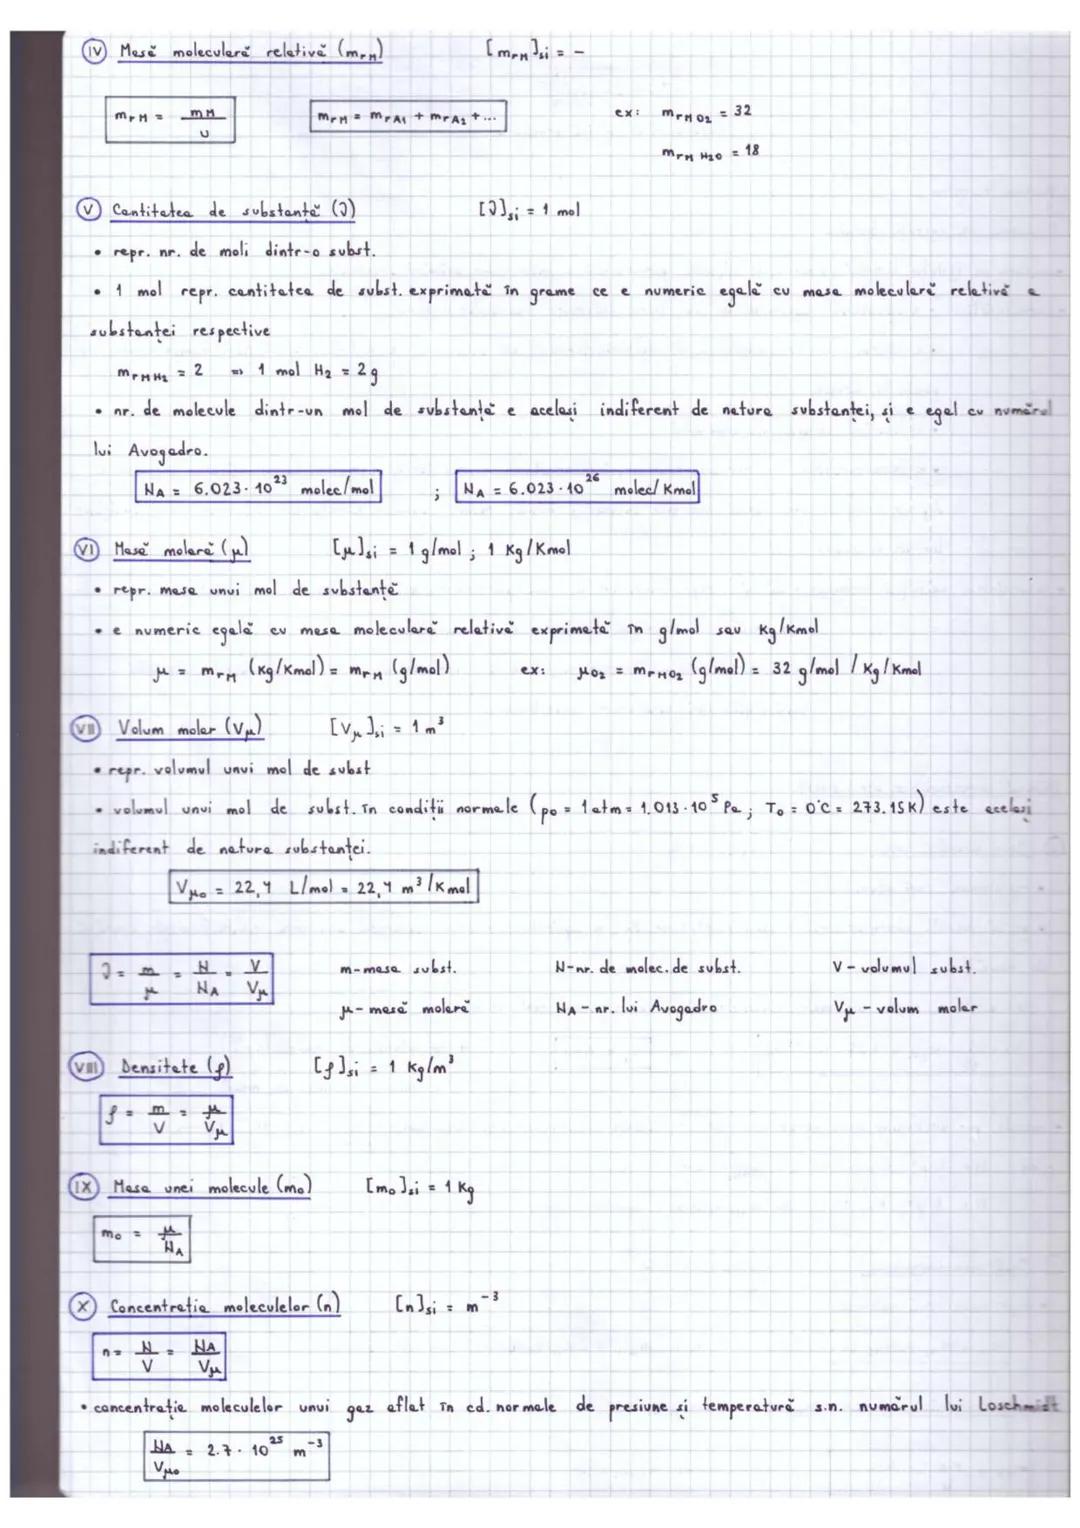 IV Masă moleculară relativă (mrM) [mrM]si = -
mrM = mM / u mrM = mrA1 + mrA2 + ... ex: mrM O2 = 32
mrM H2O = 18
V Cantitatea de substanță (ν) [ν]si = 1 mol
• repr. nr. de moli dintr-o subst.
• 1 mol repr. cantitatea de subst. exprimată în grame ce e numeric egală cu masa moleculară relativă a
substanței respective
mrM H2 = 2 => 1 mol H2 = 2g
• nr. de molecule dintr-un mol de substanță e același indiferent de natura substanței, și e egal cu numărul
lui Avogadro.
NA = 6.023 · 10²³ molec/mol ; NA = 6.023 · 10²⁶ molec/Kmol
VI Masă molară (μ) [μ]si = 1 g/mol ; 1 Kg/Kmol
• repr. masa unui mol de substanță
• e numeric egală cu masa moleculară relativă exprimată în g/mol sau Kg/Kmol
μ = mrM (Kg/Kmol) = mrM (g/mol) ex: μO2 = mrMO2 (g/mol) = 32 g/mol / Kg/Kmol
VII Volum molar (Vμ) [Vμ]si = 1 m³
• repr. volumul unui mol de subst
• volumul unui mol de subst. în condiții normale (p0 = 1 atm = 1.013 · 10⁵ Pa ; T0 = 0°C = 273.15K) este același
indiferent de natura substanței.
Vμ0 = 22,4 L/mol = 22,4 m³/Kmol
ν = m/μ = N/NA = V/Vμ m - masa subst. N - nr. de molec. de subst. V - volumul subst.
μ - masă molară NA - nr. lui Avogadro Vμ - volum molar
VIII Densitate (ρ) [ρ]si = 1 Kg/m³
ρ = m/V = μ/Vμ
IX Masa unei molecule (m0) [m0]si = 1 Kg
m0 = μ/NA
X Concentrația moleculelor (n) [n]si = m⁻³
n = N/V = NA/Vμ
• concentrația moleculelor unui gaz aflat în cd. normale de presiune și temperatură s.n. numărul lui Loschmidt
NA/Vμ0 = 2.7 · 10²⁵ m⁻³